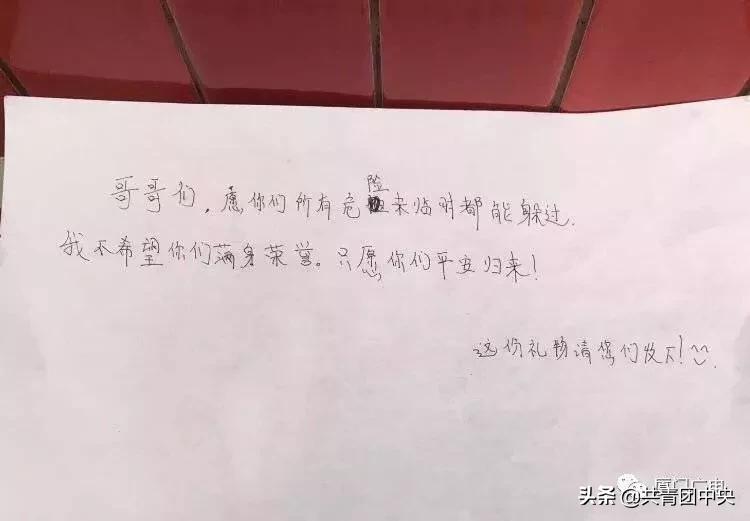 哥哥们，愿你们所有危险来临时都能躲过.
我不希望你们满身荣誉。只愿你们平安归来！
这份礼物请您们收下！
厦门广电
头条 @共青团中央